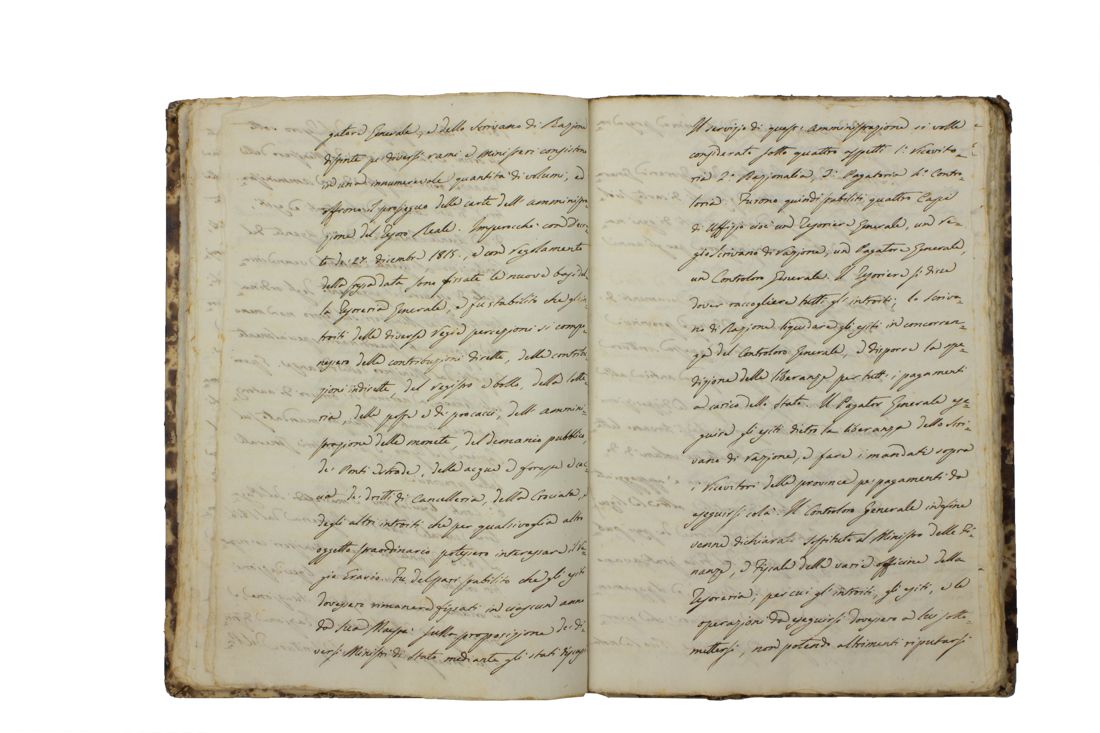 gatore Generale, e dello Scrivano di Razione
distinte pe' diversi rami e Ministeri consistono
in una innumerevole quantità di volumi, ed
offrono il proseguo delle carte dell'amministra
zione del Tesoro Reale. Imperocchè con Decre
to de' 27 dicembre 1815, e con regolamento
della stessa data sono fissate le nuove basi del
la Tesoreria Generale, e fu stabilito che gl'in
troiti delle diverse regie percezioni si compo
nessero delle contribuzioni dirette, delle contribu
zioni indirette del registro e bollo, della lotte
ria, delle poste e di procacci, dell'ammini
strazione delle monete, del demanio pubblico,
de' Ponti e strade, delle acque e foreste e cac
cia, de' dritti di Cancelleria, della Crociata, e
degli altri introiti che per qualsivoglia altro
oggetto straordinario potessero interessare il Re
gio Erario. Fu del pari stabilito che gli esiti
dovessero rimanere fissati in ciascun anno
da Sua Maestà sulla proposizione de' di
versi Ministri di Stato mediante gli stati discussi
Il servizio di quest'amministrazione si volle
considerato sotto quattro aspetti 1.° Ricevito-
ria 2.° Razionalia, 3.° Pagatoria 4.° Contro-
loria. Furono quindi stabiliti quattro Capi
di Uffizio cioè un Tesoriere Generale, un re-
gio Scrivano di razione, un Pagatore Generale,
un Controloro Generale. Il Tesoriere si dice
dover raccogliere tutti gl'introiti; lo Scriva-
no di Razione liquidare gli esiti in concorren-
za del Controloro Generale, e disporre la spe-
dizione delle liberanze per tutti i pagamenti
a carico dello Stato. Il Pagator Generale ese-
guire gli esiti dietro la liberanza dello Scri-
vano di razione, e fare i mandati sopra
i Ricevitori delle province pe' pagamenti da
eseguirsi colà. Il Controloro Generale infine
venne dichiarato sostituto al Ministro delle Fi-
nanze, e Fiscale delle varie officine della
Tesoreria; per cui gl'introiti, gli esiti, e le
operazioni da eseguirsi dovessero a lui sotto-
mettersi, non potendo altrimenti riputarsi